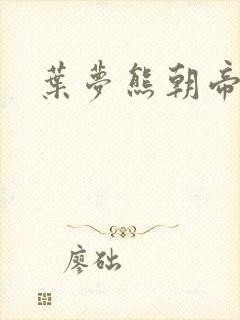 葉夢熊朝帝
廖础